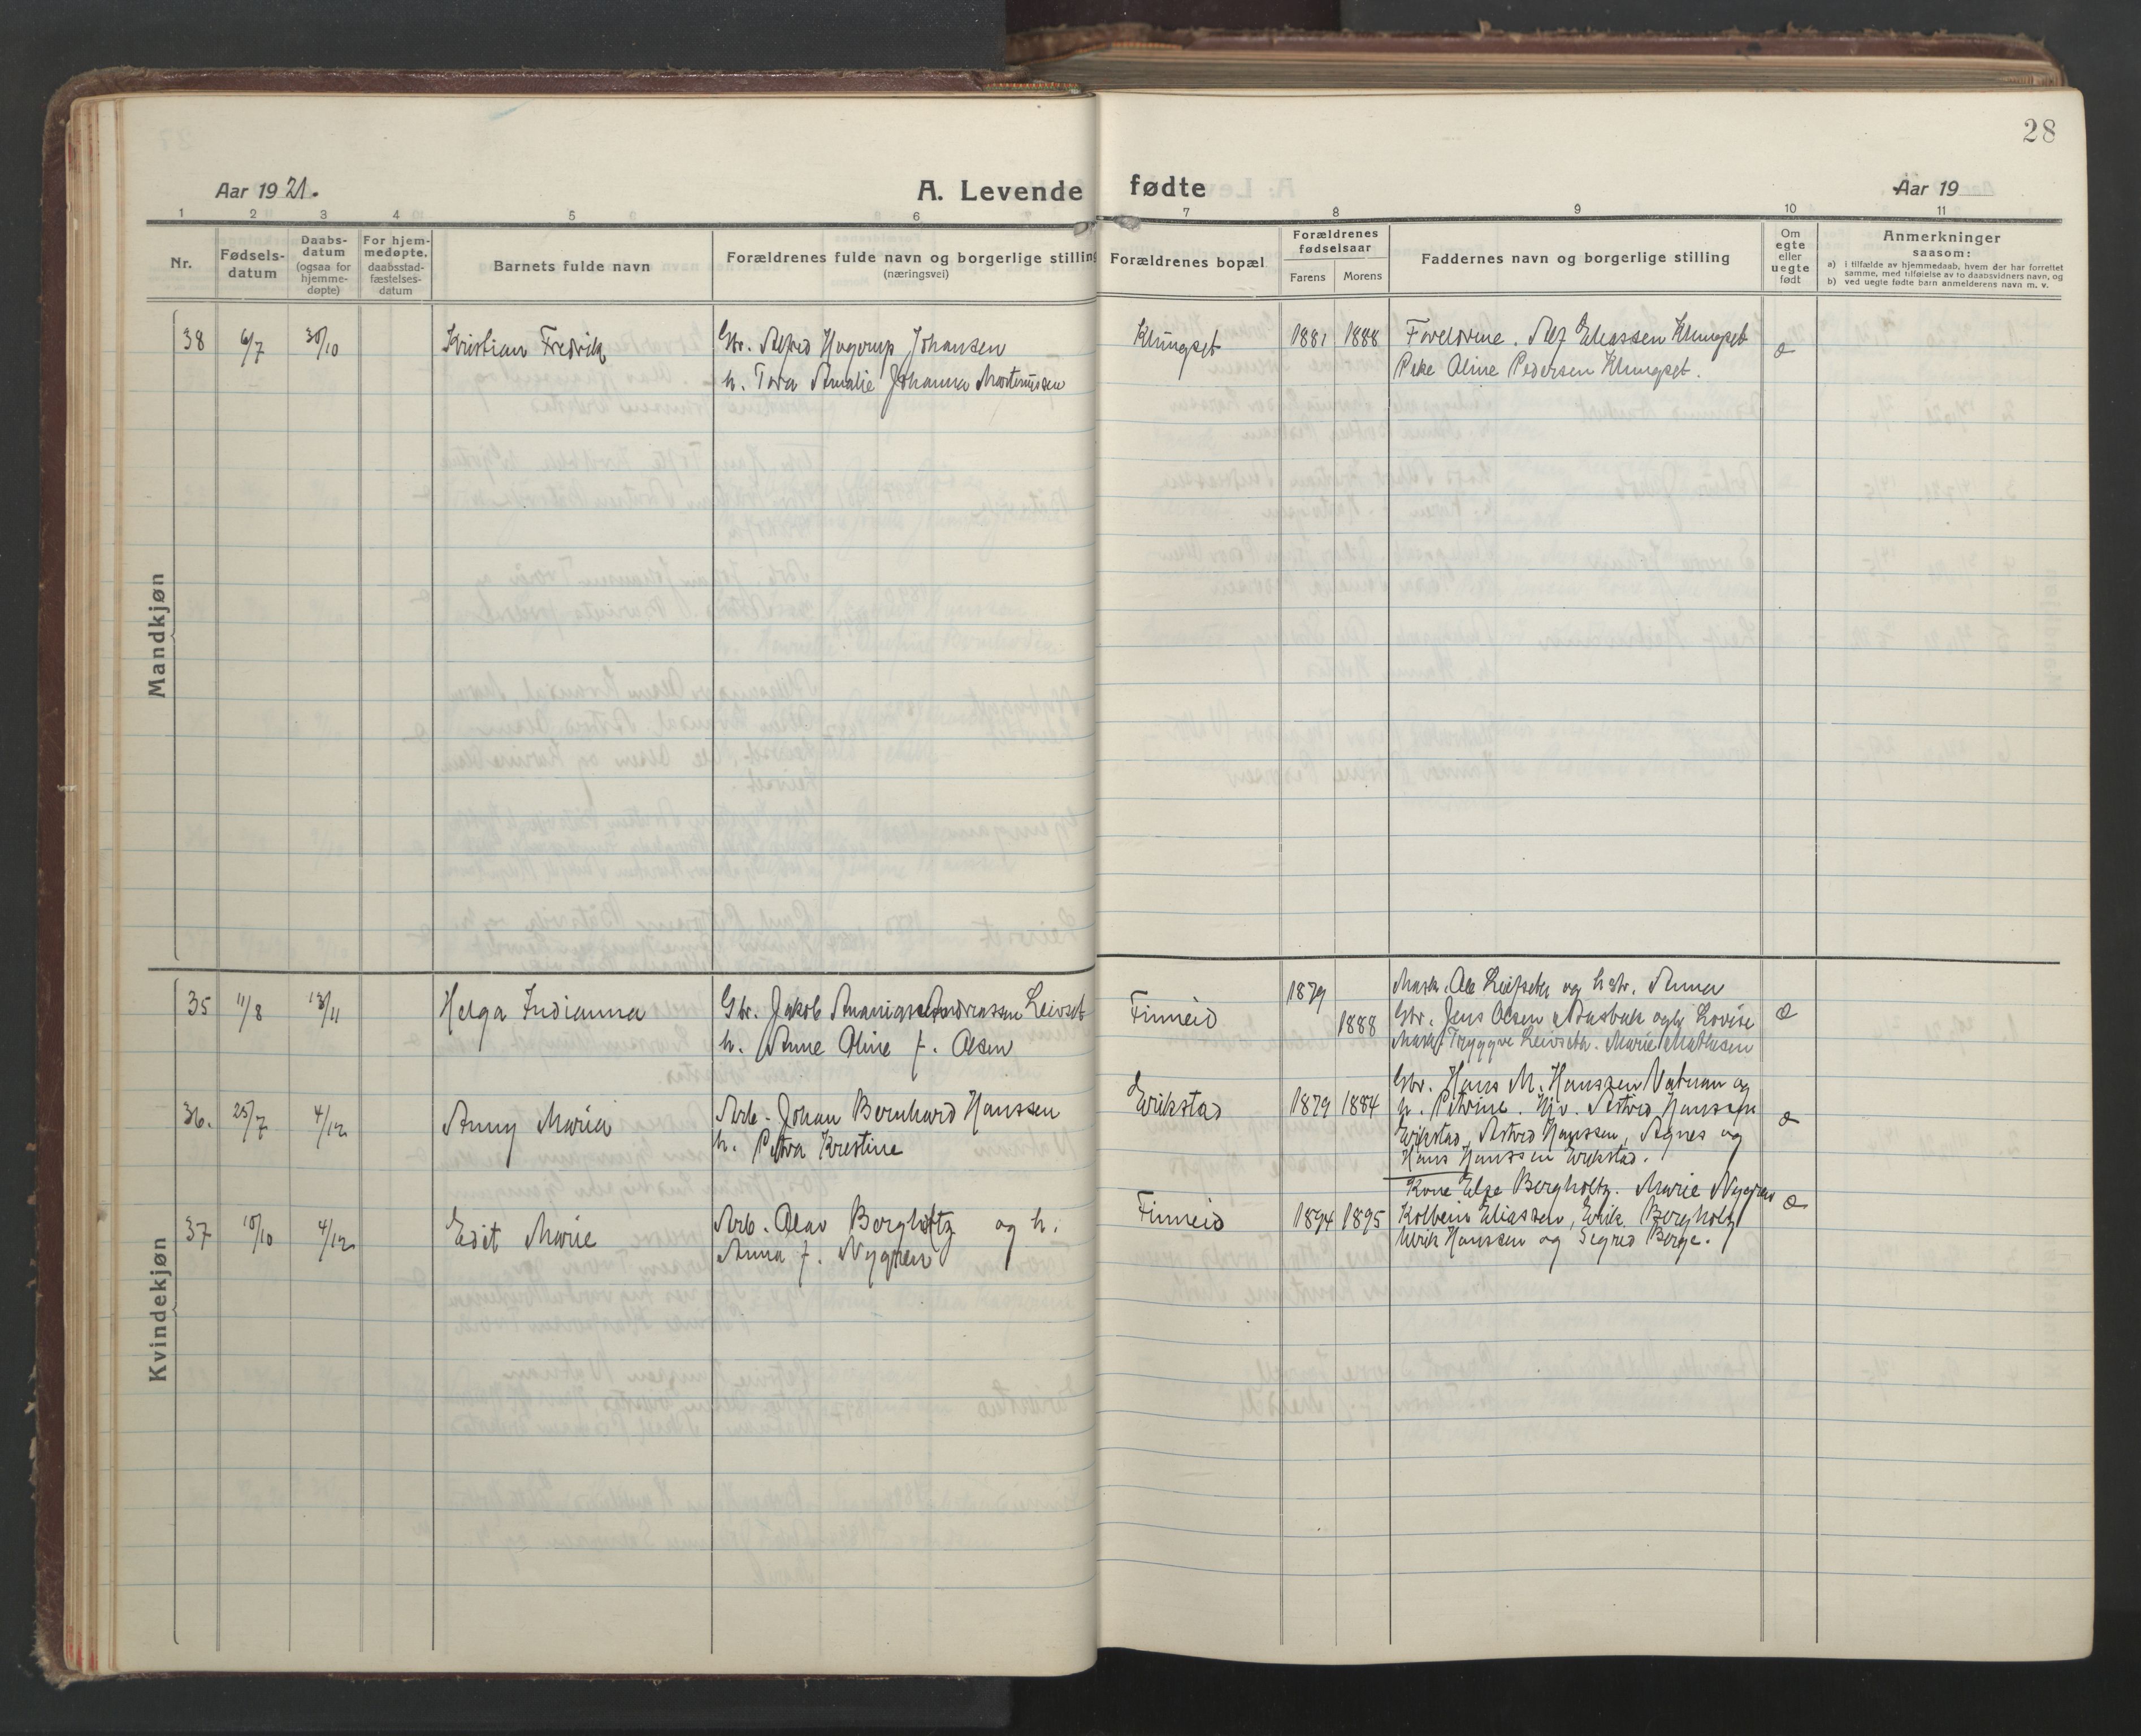 28
Aar 1921.
A. Levende fødte
Aar 19
1 2 3 4 5 6 7 8 9 10 11
Nr.
Fødsels-
datum
Daabs-
datum
(ogsaa for
hjemme-
døpte)
For hjem-
medøpte,
daabsstad-
fæstelses-
datum
Barnets fulde navn
Forældrenes fulde navn og borgerlige stilling
(næringsvei)
Forældrenes bopæl
Forældrenes
fødselsaar
Farens Morens
Faddernes navn og borgerlige stilling
Om
egte
eller
uegte
født
Anmerkninger
saasom:
a) i tilfælde av hjemmedaab, hvem der har forrettet
samme, med tilføielse av to daabsvidners navn, og
b) ved uegte fødte barn anmelderens navn m. v.
Mandkjøn
38 6/7 30/10 Kristian Fredrik Gbr. Alfred Hagerup Johansen Klungset 1881 1888 Foreldrene. Alf Eliassen Klungset
h. Tora Amalie Johanna Mortensen Pike Oline Pedersen Klungset.
Kvindekjøn
35 11/8 13/11 Helga Indianna Gbr. Jakob Ananias Andreassen Leivset Finneid 1879
h. Anne Oline f. Olsen 1888
Mask. Ole Leifseth og hstr. Anna
Gbr. Jens Olsen og h. Lovise
Mask. Tryggve Leivseth. Marie Mathisen
36. 25/7 4/12 Anny Maria Arb. Johan Bernhard Hanssen Erikstad 1879 1884
h. Petra Kristine
Gbr. Hans M. Hanssen Vatnan og
h. Petrine. Astrid Hanssen
Erikstad, Astrid Hanssen, Agnes og
Hans Hanssen Erikstad.
37 10/10 4/12 Edit Marie Arb. Olav Bergholtz og h. Finneid 1894 1895
Anna f. Nygren
Kone Else Bergholtz. Marie Nygren
Kolbein Eliassen, Erik Bergholtz
Ulrik Hanssen og Sigrid Berge.